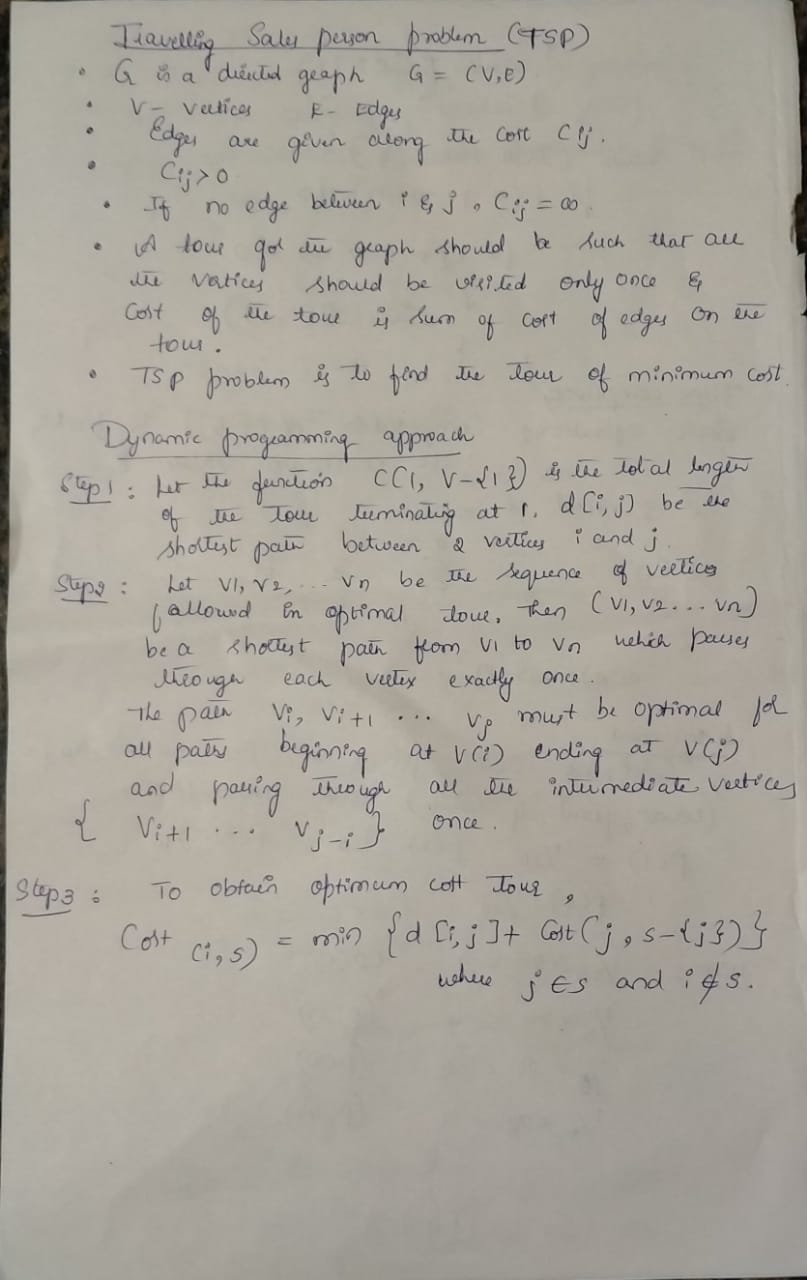 Travelling Sales person problem (TSP)
• G is a directed graph G = (V,E)
• V - Vertices E - Edges
• Edges are given along the cost Cij.
• Cij>0
• If no edge between i & j, Cij = ∞.
• A tour for the graph should be such that all
the vertices should be visited only once &
Cost of the tour is sum of cost of edges on the
tour.
• TSP problem is to find the tour of minimum cost
Dynamic programming approach
Step1: Let the function C(1, V-{1}) is the total length
of the tour terminating at 1. d[i,j] be the
shortest path between 2 vertices i and j.
Step2: Let V1, V2, ... Vn be the sequence of vertices
followed in optimal tour, then (V1, V2... Vn)
be a shortest path from V1 to Vn which passes
through each vertex exactly once.
The path Vi, Vi+1 ... Vj must be optimal for
all paths beginning at V(i) ending at V(j)
and passing through all the intermediate vertices
{ Vi+1 ... Vj-i } once.
Step3: To obtain optimum cost tour,
Cost (i,S) = min {d [i,j]+ Cost(j, S-{j})}
where j ∈ S and i ∉ S.